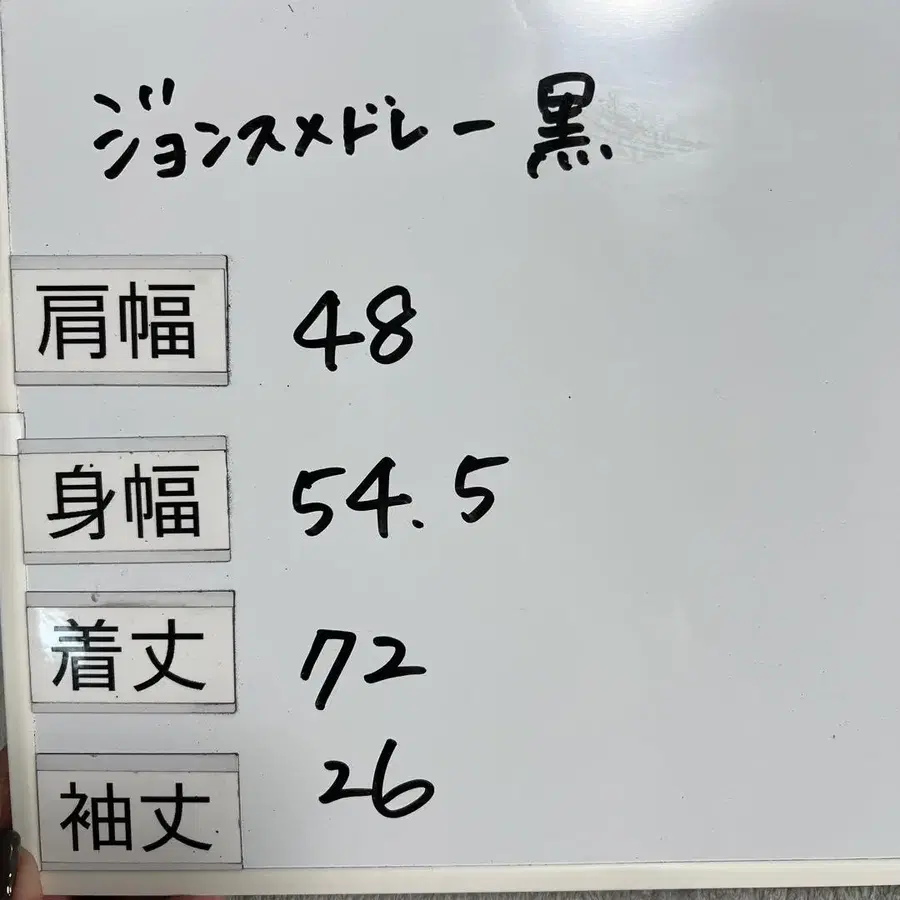 ジョンスメドレー 黒
肩幅 48
身幅 54.5
着丈 72
袖丈 26